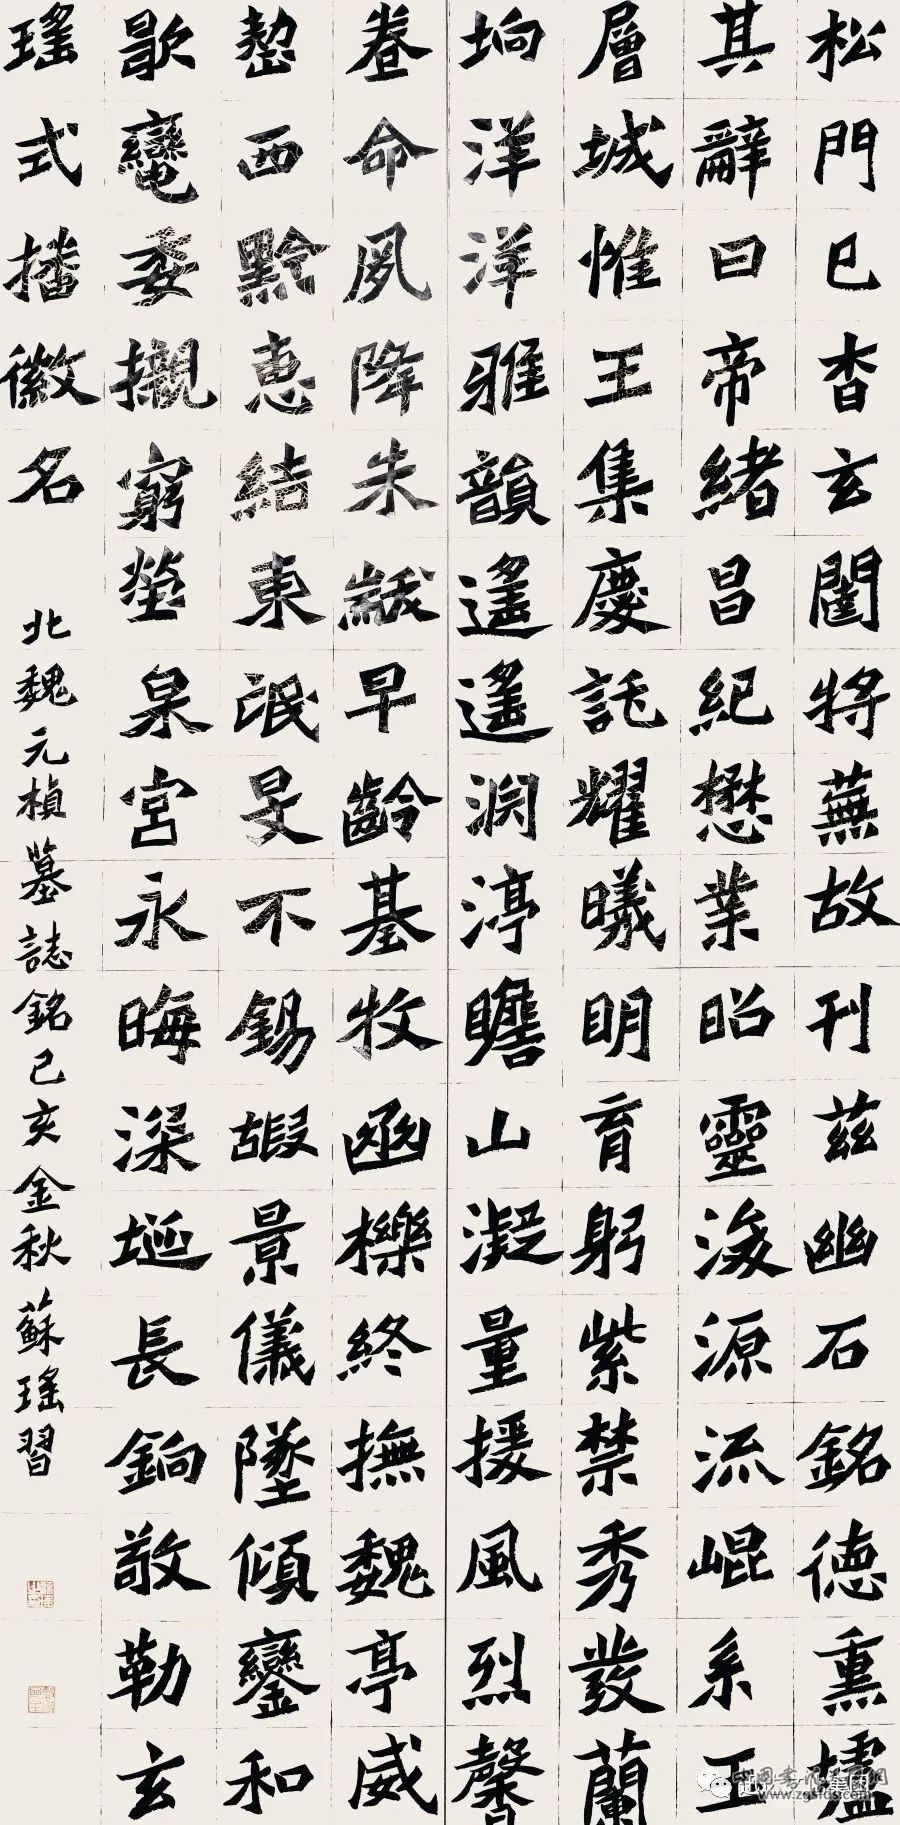 松門已杳玄闥將蕪故刊茲幽石銘德熏壚
其辭曰帝緒昌紀懋業昭靈浚源流崐系玉
層城惟王集慶託耀曦明育躬紫禁秀發蘭
坰洋洋雅韻遙遙渕渟瞻山凝量援風烈馨
眷命夙降朱黻早齡基牧函櫟終撫魏亭威
懃西黔惠結東氓旻不錫嘏景儀墜傾鑾和
歇鸞委櫬窮塋泉宮永晦深埏長鈞敬勒玄
瑤式播徽名
北魏元楨墓誌銘己亥金秋蘇瑤習
www.zgsfds.com